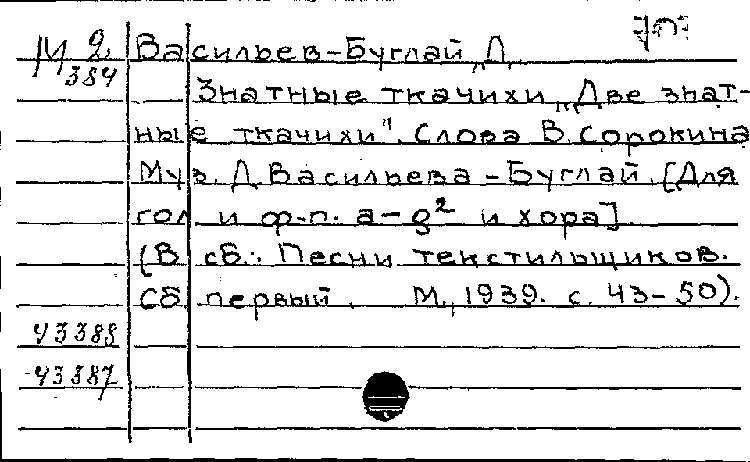 М 2 Васильев-Буглай, Д.
384
Знатные ткачихи „Две знат-
ные ткачихи". Слова В. Сорокина
Муз. Д. Васильева-Буглай. [Для
гол. и ф-п. a-g² и хора]
(В сб.: Песни текстильщиков.
Сб. первый. М., 1939. с. 43-50).
43388
43387